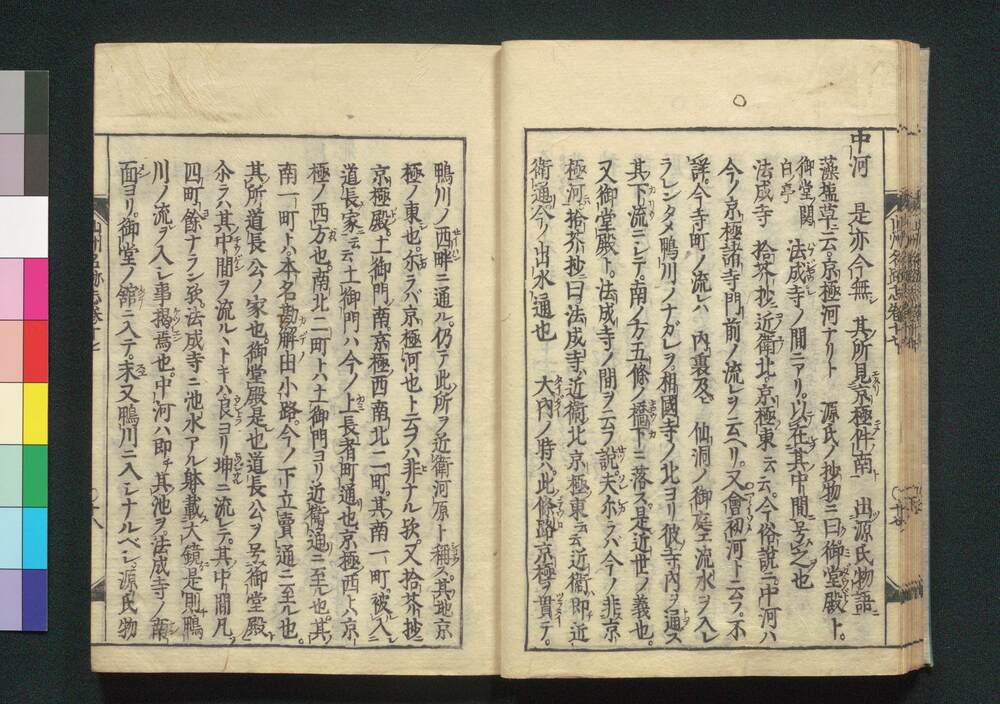 中河　是亦今無シ　其所見京極件南ニ　出源氏物語ニ
藻塩草ニ云京極河ナリト　源氏ノ抄物ニ曰御堂殿ト
御堂関白亭　法成寺ノ間ニアリ以在其中間号之也
法成寺　拾芥抄ニ近衛北京極東云云今俗説ニ中河ハ
今ノ京極諸寺門前ノ流レヲ云ヘリ又會初河ト云フ不
審今寺町ノ流レハ　内裏及ヒ　仙洞ノ御庭エ流水ヲ入レ
ラレンタメ鴨川ノナガレヲ相國寺ノ北ヨリ彼寺内ヲ通ス
其下流ニシテ南ノ方五條ノ橋下ニ落ス是近世ノ義也
又御堂殿ト法成寺ノ間ヲ云フ説夫尓ラハ今ノ非京
極河拾芥抄曰法成寺近衛北京極東云云近衛即近
衛通今ノ出水通也　大内ノ時ハ此條路京極ヲ貫テ
鴨川ノ西畔ニ通ル仍テ此所ヲ近衛河原ト稱ス其地京
極ノ東也尓ラバ京極河也ト云ヲハ非ナル歟又拾芥抄ニ
京極殿土御門南京極西南北二町其南一町被入
道長家云云土御門ハ今ノ上長者町通也京極西トハ京
極ノ西方也南北二町トハ土御門ヨリ近衛通ニ至ル也其
南一町トハ本名勘解由小路今ノ下立賣通ニ至ル也
其所道長公ノ家也御堂殿是也道長公ヲ号御堂殿
尒ラハ其中間ヲ流ルヽトキハ艮ヨリ坤ニ流レテ其中間凡
四町餘ナラン歟法成寺ニ池水アル躰載大鏡是則鴨
川ノ流ヲ入レシ事掲焉也中河ハ即チ其池ヲ法成寺ノ南
面ヨリ御堂ノ舘ニ入テ末又鴨川ニ入シナルベシ源氏物